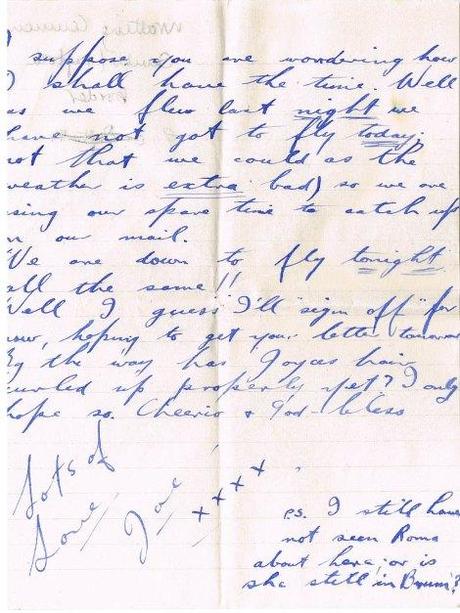 I suppose you are wondering how
I shall have the time. Well
as we flew last night we
have not got to fly today.
not that we could as the
weather is extra bad) so we are
using our spare time to catch up
on our mail.
We are down to fly tonight
all the same!!
Well I guess I'll "sign off" for
now, hoping to get your letter tomorrow
By the way has Joyces hair
curled up properly yet? I only
hope so. Cheerio & God-bless
Lots of
Love
Joe
x x x x
P.S. I still have
not seen Roma
about here, or is
she still in Brum?